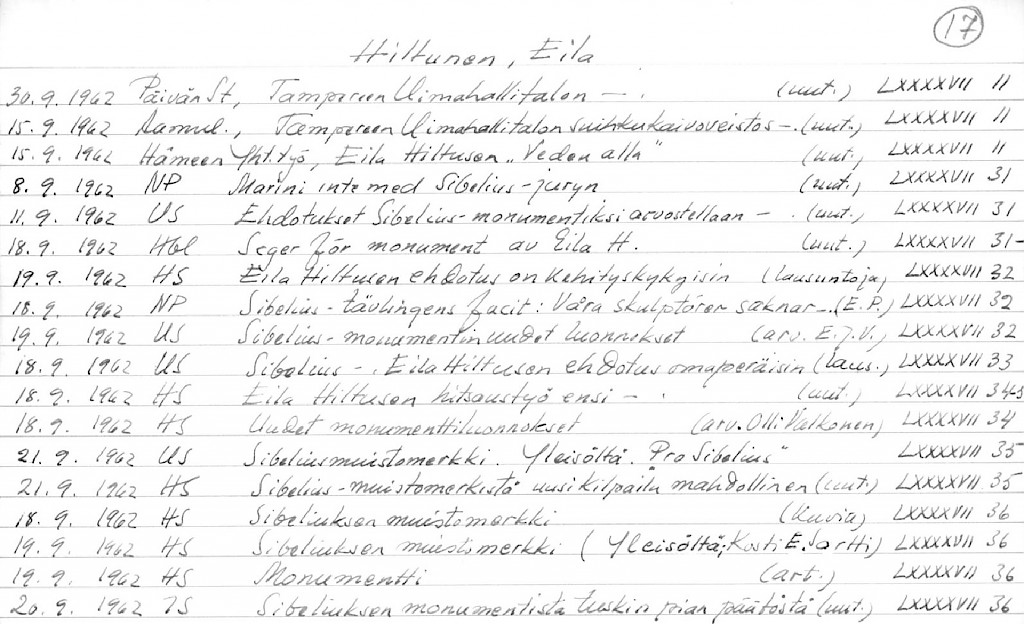 17
Hiltunen, Eila
30.9.1962 Päivän St, Tampereen Uimahallitalon — . (uut.) LXXXXVII 11
15.9.1962 Aamul., Tampereen Uimahallitalon suihkukaivoveistos -. (uut.) LXXXXVII 11
15.9.1962 Hämeen Yht.työ, Eila Hiltusen "Veden alla" (uut.) LXXXXVII 11
8.9.1962 NP Marini inte med Sibelius-juryn (uut.) LXXXXVII 31
11.9.1962 US Ehdotukset Sibelius-monumentiksi arvostellaan - . (uut.) LXXXXVII 31
18.9.1962 Hbl Seger för monument av Eila H. (uut.) LXXXXVII 31-
19.9.1962 HS Eila Hiltusen ehdotus on kehityskykyisin (lausuntoja) LXXXXVII 32
18.9.1962 NP Sibelius-tävlingens facit: Våra skulptörer saknar -. (E.P.) LXXXXVII 32
19.9.1962 US Sibelius-monumentin uudet luonnokset (arv. E.J.V.) LXXXXVII 32
18.9.1962 US Sibelius - . Eila Hiltusen ehdotus omaperäisin (laus.) LXXXXVII 33
18.9.1962 HS Eila Hiltusen hitsaustyö ensi - . (uut.) LXXXXVII
18.9.1962 HS Uudet monumenttiluonnokset (arv. Olli Valkonen) LXXXXVII 34
21.9.1962 US Sibeliusmuistomerkki. Yleisöltä. "Pro Sibelius" LXXXXVII 35
21.9.1962 HS Sibelius-muistomerkistä uusi kilpailu mahdollinen (uut.) LXXXXVII 35
18.9.1962 HS Sibeliuksen muistomerkki (kuvia) LXXXXVII 36
19.9.1962 HS Sibeliuksen muistomerkki (Yleisöltä; Kosti E. Sartti) LXXXXVII 36
19.9.1962 HS Monumentti (art.) LXXXXVII 36
20.9.1962 TS Sibeliuksen monumentista tuskin pian päätöstä (uut.) LXXXXVII 36